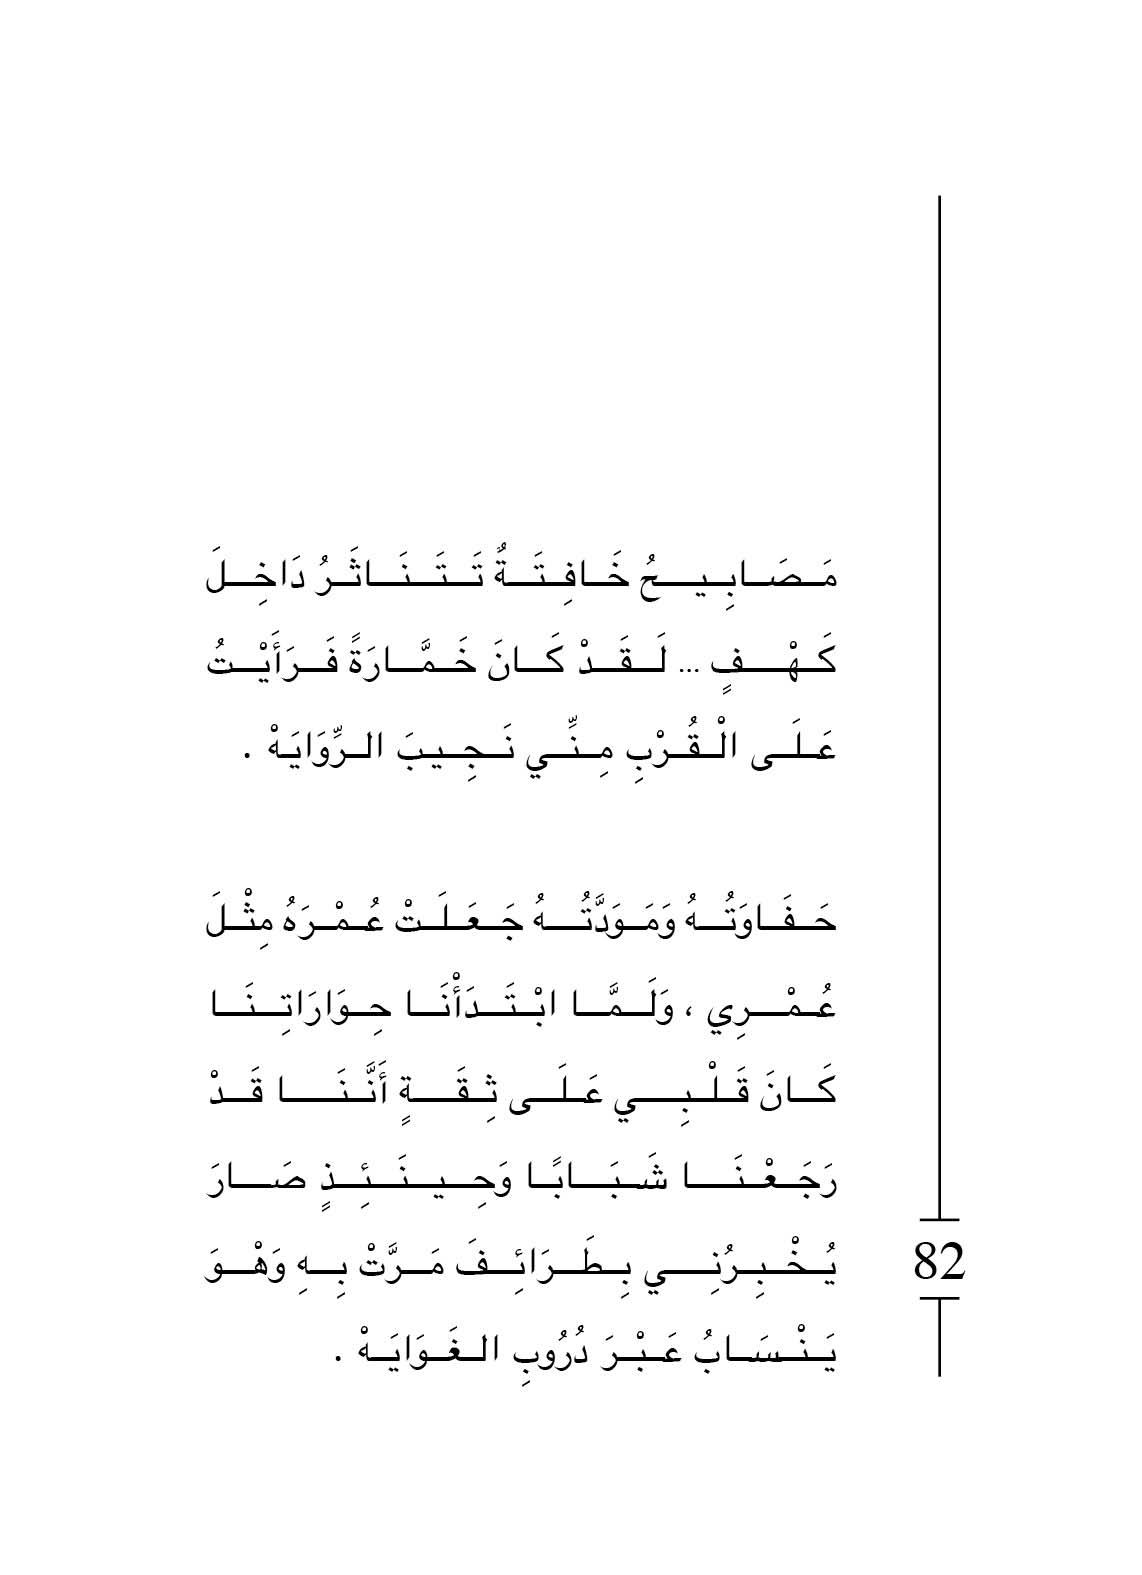 مَصَابِيحُ خَافِتَةٌ تَتَنَاثَرُ دَاخِلَ
كَهْفٍ ... لَقَدْ كَانَ خَمَّارَةً فَرَأَيْتُ
عَلَى الْقُرْبِ مِنِّي نَجِيبَ الرِّوَايَهْ .
حَفَاوَتُهُ وَمَوَدَّتُهُ جَعَلَتْ عُمْرَهُ مِثْلَ
عُمْرِي ، وَلَمَّا ابْتَدَأْنَا حِوَارَاتِنَا
كَانَ قَلْبِي عَلَى ثِقَةٍ أَنَّنَا قَدْ
رَجَعْنَا شَبَابًا وَحِينَئِذٍ صَارَ
يُخْبِرُنِي بِطَرَائِفَ مَرَّتْ بِهِ وَهْوَ
يَنْسَابُ عَبْرَ دُرُوبِ الغَوَايَهْ .
82